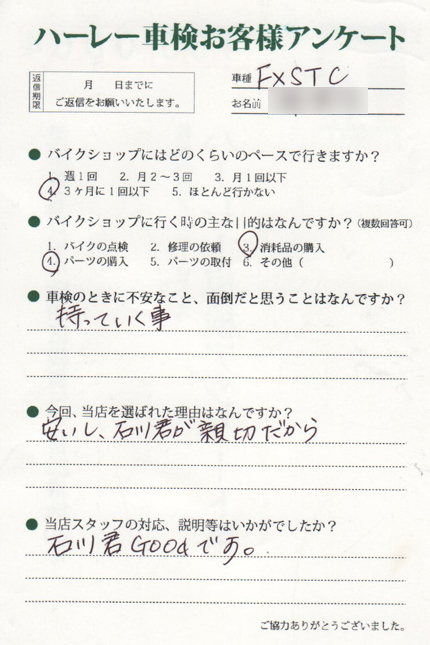 ハーレー車検お客様アンケート
返信期限
月 日までに
ご返信をお願いいたします。
車種 FXSTC
お名前
● バイクショップにはどのくらいのペースで行きますか？
1. 週1回 2. 月2～3回 3. 月1回以下
4. 3ヶ月に1回以下 5. ほとんど行かない
● バイクショップに行く時の主な目的はなんですか？(複数回答可)
1. バイクの点検 2. 修理の依頼 3. 消耗品の購入
4. パーツの購入 5. パーツの取付 6. その他（ ）
● 車検のときに不安なこと、面倒だと思うことはなんですか？
持っていく事
● 今回、当店を選ばれた理由はなんですか？
安いし、石川君が親切だから
● 当店スタッフの対応、説明等はいかがでしたか？
石川君Goodです。
ご協力ありがとうございました。